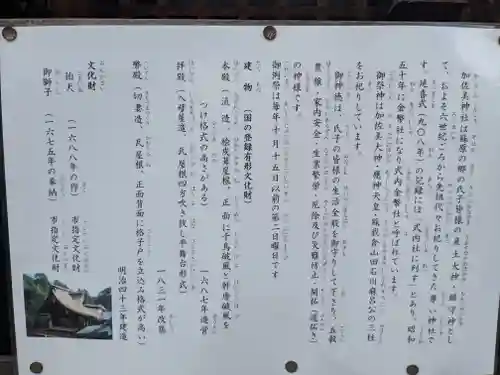 加佐美神社は蘇原の郷の氏子皆様の産土大神、鎮守神とし
て、およそ六世紀ごろから先祖代々お祀りしてきた尊い神社で
す。延喜式（九〇八年）の記録には「式内社に列す」とあり、昭和
五十年に金幣社になり式内金幣社と呼ばれています。
御祭神は加佐美大神・應神天皇・蘇我倉山田石川麻呂公の三柱
をお祀りしています。
御神徳は、氏子の皆様の生活全般を御守りして下さり、五穀
豊穣・家内安全・生業繁栄・厄除及び災難排止・開拓（道拓き）
の神様です。
御例祭は毎年十月十五日以前の第二日曜日です
建物（国の登録有形文化財）
本殿（流造、桧皮葺屋根、正面に千鳥破風と軒唐破風を
つけ格式の高さがある） 一六八七年造営
拝殿（入母屋造、瓦屋根四方吹き抜し平舞台形式）
一八三一年改築
幣殿（切妻造、瓦屋根、正面背面に格子戸を立込み格式が高い）
明治四十三年建造
文化財
狛犬（一六八八年の作） 市指定文化財
御獅子（一六七五年の奉納） 市指定文化財